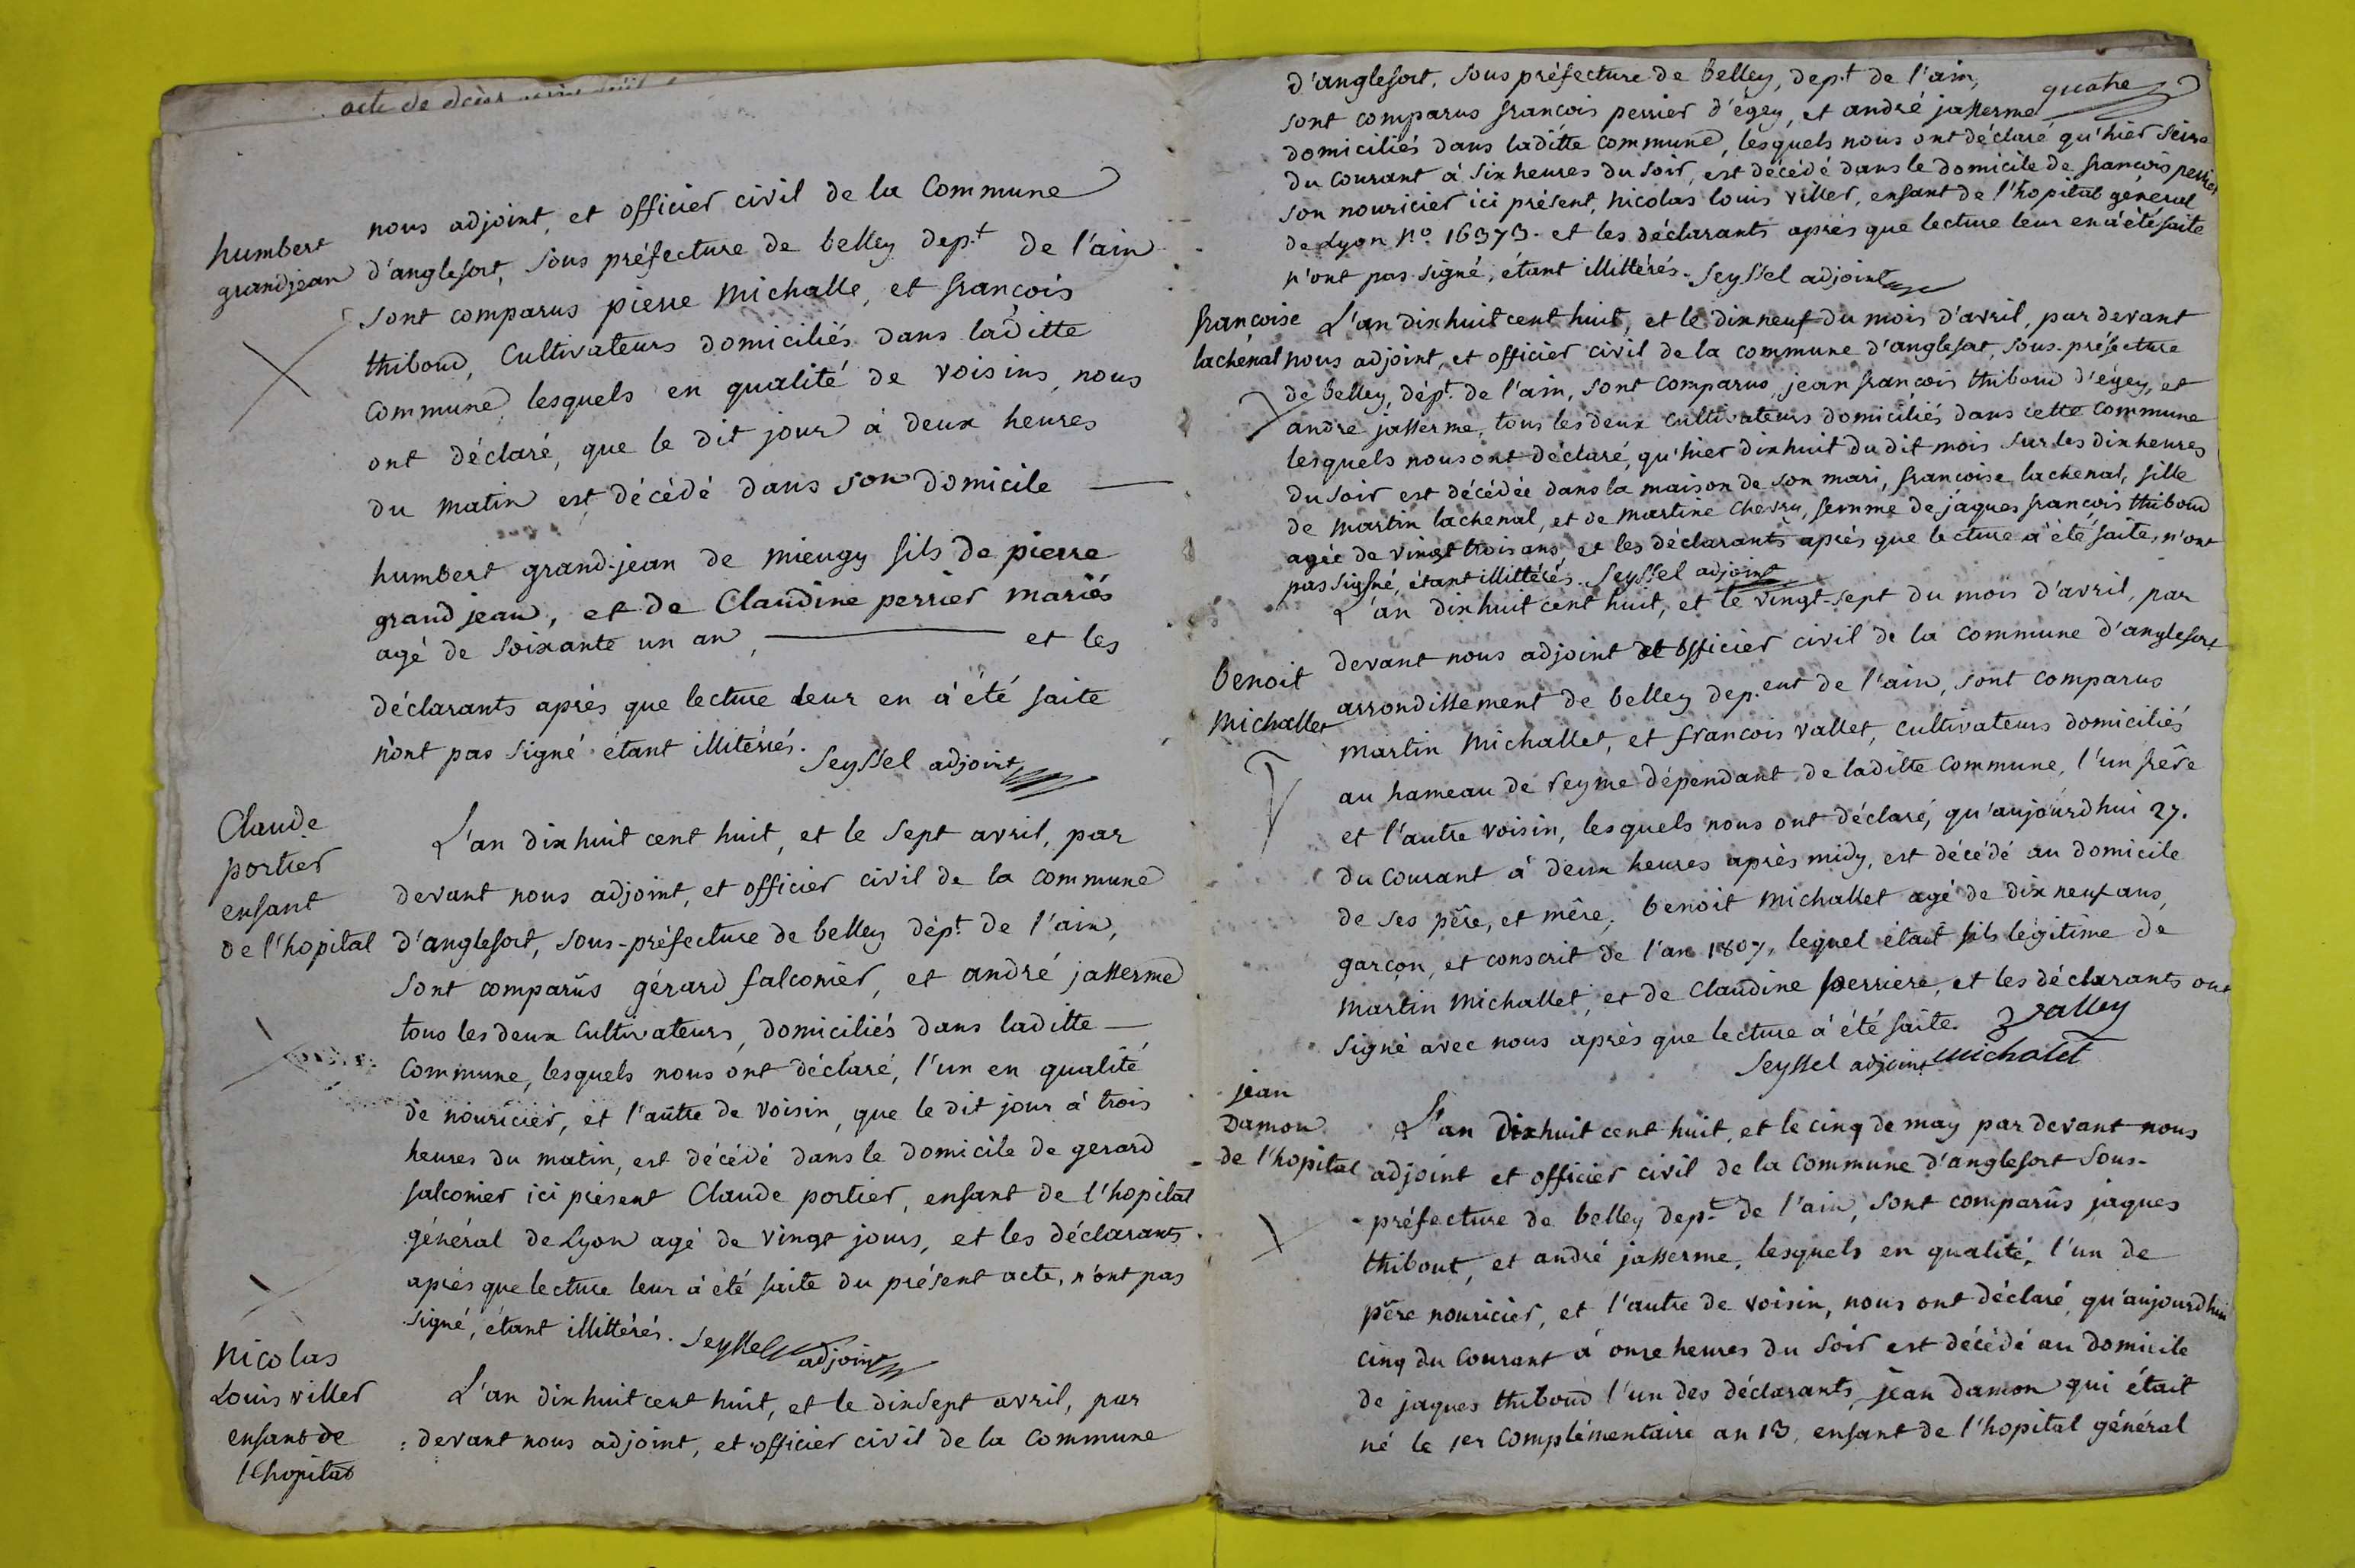 acte de décès
humbert
grandjean
nous adjoint, et officier civil de la Commune
d'anglefort, sous préfecture de belley dep.t de l'ain
sont comparus pierre Michalle, et françois
thiboud, Cultivateurs domiciliés dans laditte
commune, lesquels en qualité de voisins, nous
ont déclaré, que le dit jour à deux heures
du matin est décédé dans son domicile —
humbert grand-jean de mieugy fils de pierre
grand jean, et de Claudine perrier mariés
agé de soixante un an, — et les
déclarants après que lecture leur en à été faite
n'ont pas signé étant illiterrés. Seyssel adjoint
Claude
portier
enfant
de l'hopital
L'an dix huit cent huit, et le sept avril, par
devant nous adjoint, et officier civil de la commune
d'anglefort, sous-préfecture de belley dép.t de l'ain,
sont comparus gérard falconier, et andré jasserme
tous les deux cultivateurs, domiciliés dans laditte —
commune, lesquels nous ont déclaré, l'un en qualité
de nouricier, et l'autre de voisin, que le dit jour à trois
heures du matin, est décédé dans le domicile de gerard
falconier ici présent Claude portier, enfant de l'hopital
général de Lyon agé de vingt jours, et les déclarants
après que lecture leur à été faite du présent acte, n'ont pas
signé, étant illittérés. Seyssel adjoint
Nicolas
Louis viller
enfant de
l'hopital
L'an dix huit cent huit, et le dix sept avril, par
devant nous adjoint, et officier civil de la commune
quatre
d'anglefort, sous préfecture de belley, dep.t de l'ain,
sont comparus francois perrier d'égey, et andré jasserme
domiciliés dans laditte commune, lesquels nous ont déclaré qu'hier seize
du courant à six heures du soir, est décédé dans le domicile de francois perrier
son nouricier ici présent, nicolas louis viller, enfant de l'hopital général
de Lyon n.o 16373. et les déclarants après que lecture leur en à été faite
n'ont pas signé, étant illittérés. Seyssel adjoint
françoise
lachenal
L'an dix huit cent huit, et le dix neuf du mois d'avril, par devant
nous adjoint, et officier civil de la commune d'anglefort, sous-préfecture
de belley, dép.t de l'ain, sont comparus, jean francois thiboud d'égey, et
andré jasserme, tous les deux cultivateurs domiciliés dans cette commune
lesquels nous ont déclaré, qu'hier dix huit du dit mois sur les dix heures
du soir est décédée dans la maison de son mari, francoise lachenal, fille
de martin lachenal, et de martine chevry, femme de jaques françois thiboud
agée de vingt trois ans et les déclarants après que lecture à été faite, n'ont
pas signé, étant illittérés. Seyssel adjoint
L'an dix huit cent huit, et le vingt-sept du mois d'avril, par
benoit
Michallet
devant nous adjoint et officier civil de la commune d'anglefort
arrondissement de belley dep.ent de l'ain, sont comparus
martin Michallet, et francois vallet, cultivateurs domiciliés
au hameau de veyme dépendant de laditte commune, l'un frère
et l'autre voisin, lesquels nous ont déclaré, qu'aujourdhui 27.
du courant à deux heures après midy, est décédé au domicile
de ses père, et mère, benoit michallet agé de dix neuf ans,
garçon, et conscrit de l'an 1807, lequel était fils légitime de
Martin Michallet, et de Claudine perriere, et les déclarants ont
signé avec nous après que lecture à été faite. valley
Seyssel adjoint michalet
jean
Damon
de l'hopital
L'an dix huit cent huit, et le cinq de may par devant nous
adjoint et officier civil de la commune d'anglefort sous-
préfecture de belley dep.t de l'ain, sont comparus jaques
thibout, et andré jasserme, lesquels en qualité, l'un de
père nouricier, et l'autre de voisin, nous ont déclaré, qu'aujourdhui
cinq du courant à onze heures du soir est décédé au domicile
de jaques thiboud l'un des déclarants, jean damon qui était
né le 1er complémentaire an 13, enfant de l'hopital général